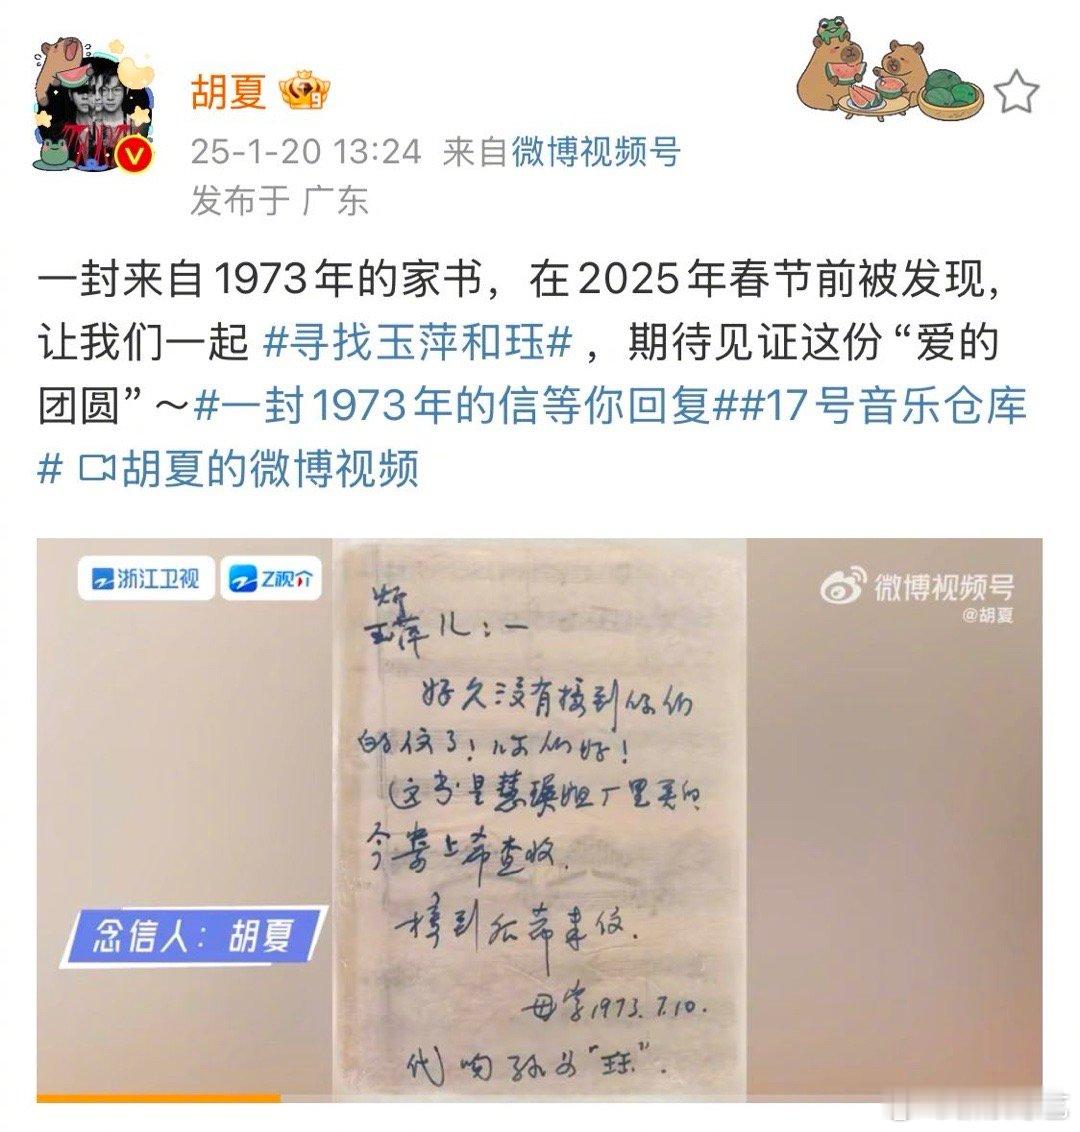 胡夏
9
25-1-20 13:24 来自微博视频号
发布于 广东
一封来自1973年的家书，在2025年春节前被发现，
让我们一起 #寻找玉萍和珏# ，期待见证这份 “爱的
团圆” ～#一封1973年的信等你回复##17号音乐仓库
# 胡夏的微博视频
浙江卫视 Z视介
微博视频号
@胡夏
玉萍儿：一
好久没有接到你们
的信了！你们好！
（这书是慧瑛姐厂里买的
今寄上希查收.
接到后希来信.
母字1973.7.10.
代吻孙女“珏”.
念信人：胡夏